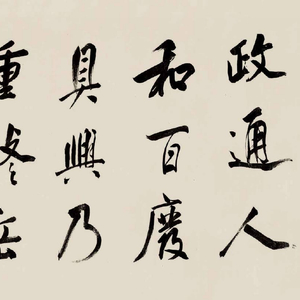 政通人
和百廢
具興乃
重修岳